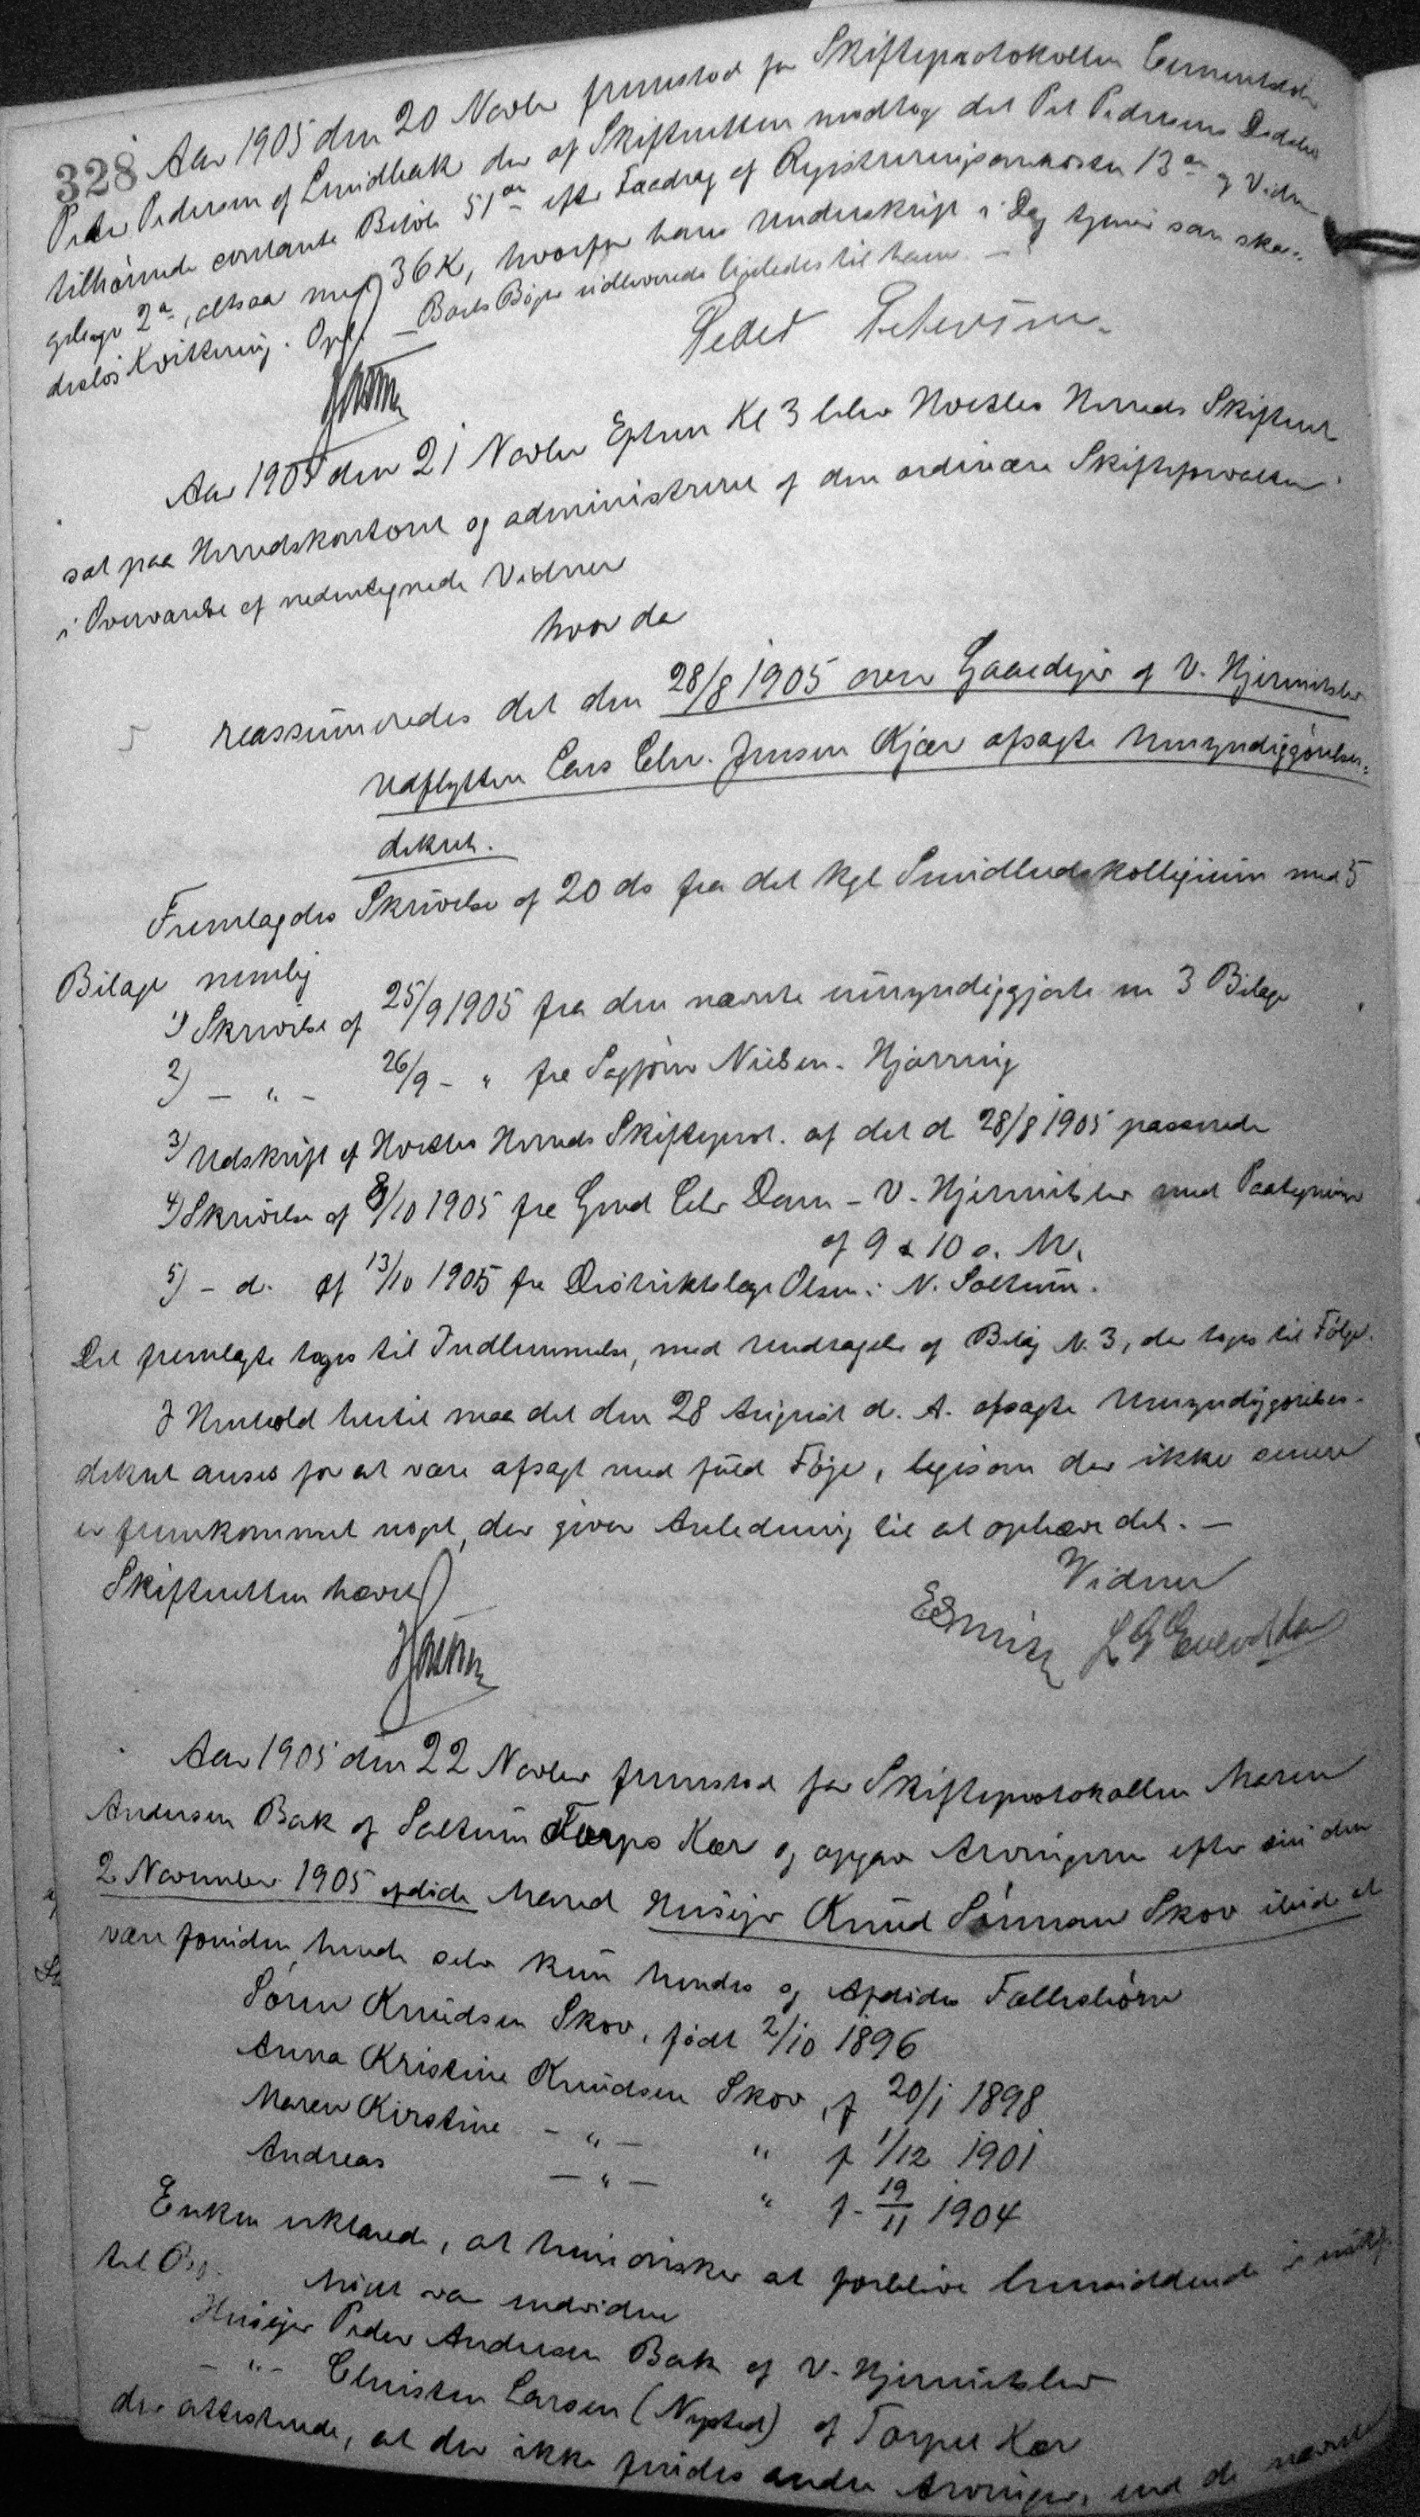 328 Aar 1905 den 20 Novbr fremstod for Skifteprotokollen
Peder Pedersen af Lundbak der af Skifteretten modtog det Pet Pedersens Dødsbo
tilhørende contante Beløb 51 efter Fradrag af Registreringsomkostn 13 og Vidne
gebyr 2, altsaa med 36 K, hvorfor hans Underskrift i Dag tjener som ska-
desløs Kvittering. Opl. — Boets Bøger udleveredes ligeledes til ham. —
Peder Petersen.
Aar 1905 den 21 Novbr Efterm Kl 3 blev Hvetbo Herreds Skifteret
sat paa Herredskontoret og administreret af den ordinære Skifteforvalter
i Overværelse af nedentegnede Vidner
hvor da
reassumeredes det den 28/8 1905 over Gaardejer af V. Hjermitslev
Udflytter Lars Chr. Jensen Kjær afsagte Umyndiggørelses-
dekret.
Fremlagdes Skrivelse af 20 ds fra det kgl Smidleudskollegium med 5
Bilage nemlig
1) Skrivelse af 25/9 1905 fra den nævnte umyndiggjorte m 3 Bilage
2) — " — 26/9 - " fra Sagfører Nielsen - Hjørring
3) Udskrift af Hvetbo Herreds Skifteprot. af det d 28/8 1905 passerede
4) Skrivelse af 8/10 1905 fra Grd Chr Dam - V. Hjermitslev med Paategning
af 9 & 10 s. M.
5) - d. af 13/10 1905 fra Distriktslæge Olsen i N. Saltum.
Det fremlagte toges til Indlemmelse, med Undtagelse af Bilag N. 3, der toges til Følge.
I Henhold hertil maa det den 28 August d. A. afsagte Umyndiggørelses-
dekret anses for at være afsagt med fuld Føje, ligesom der ikke senere
er fremkommet noget, der giver Anledning til at ophæve det. —
Skifteretten hævet
Vidner
Aar 1905 den 22 Novbr fremstod for Skifteprotokollen Maren
Andersen Bak af Saltum Torps Kær og opgav Arvingerne efter sin den
2 November 1905 afdøde Mand Husejer Knud Sørensen Skov ibid at
være foruden hende selv kun hendes og Afdødes Fællesbørn
Søren Knudsen Skov, født 2/10 1896
Anna Kristine Knudsen Skov, f 20/1 1898
Maren Kirstine — " — " f 1/12 1901
Andreas — " — " f. 19/11 1904
Enken erklærede, at hun ønsker at forblive hensiddende i uskf.
til Bo. Mødt var endvidere
Husejer Peder Andersen Bak af V. Hjermitslev
— " — Christen Larsen (Nysted) af Torpet Kær
der attesterede, at der ikke findes andre Arvinger, end de nævnte